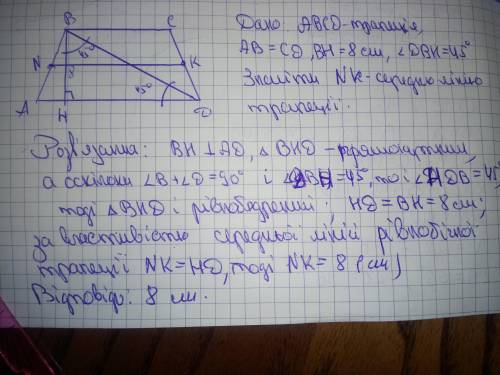 B C
N K
A H D
45°
8
45°
Дано: ABCD-трапеція,
AB = CD, BH = 8 см, ∠DBH = 45°
Знайти NK-середню лінію
трапеції.
Розв'язання: BH ⊥ AD, △ BHD - прямокутний,
а оскільки ∠B + ∠D = 90° і ∠DBH = 45°, то і ∠HDB = 45°
тоді △ BHD і рівнобедрений; HD = BH = 8 см;
за властивістю середньої лінії рівнобічної
трапеції NK = HD, тоді NK = 8 (см)
Відповідь: 8 см.